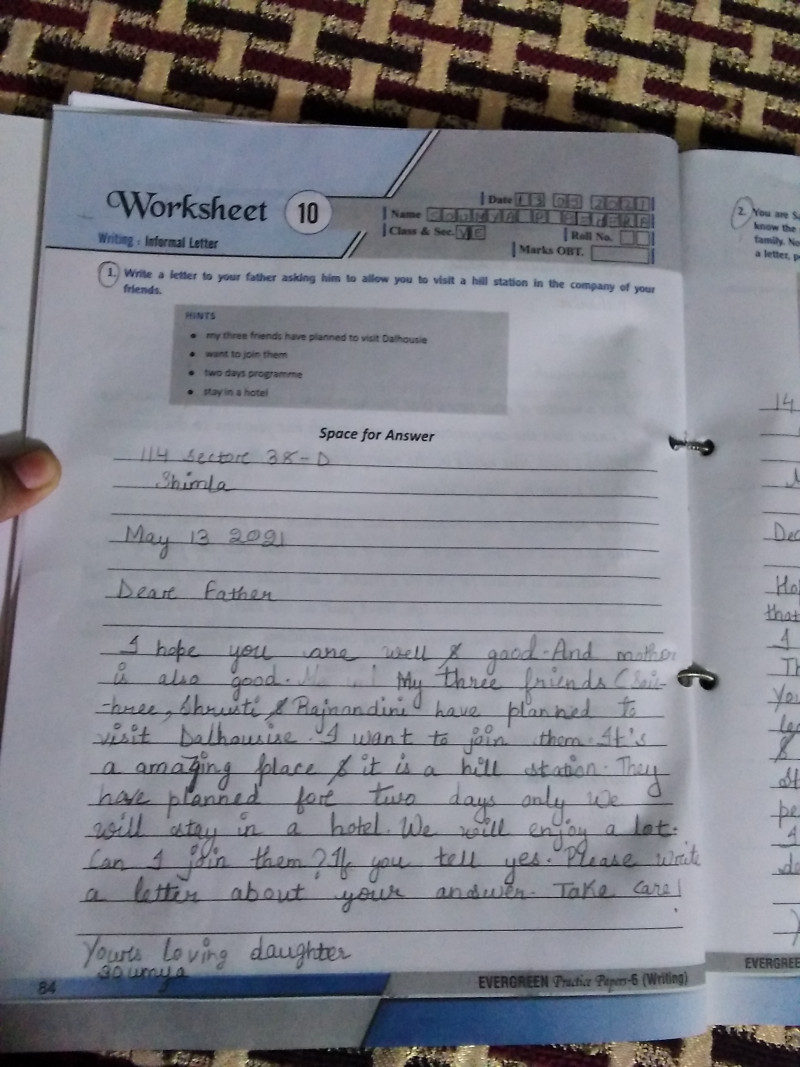 Worksheet 10
Writing : Informal Letter
Date 13 05 2021
Name
Class & Sec. VI E
Roll No.
Marks OBT.
1. Write a letter to your father asking him to allow you to visit a hill station in the company of your
friends.
HINTS
• my three friends have planned to visit Dalhousie
• want to join them
• two days programme
• stay in a hotel
Space for Answer
114 Sectore 38-D
Shimla
May 13 2021
Deare Father
I hope you are well & good. And mother
is also good. My three friends (Sai-
-hree, Shrusti & Rajnandini have planned to
visit Dalhousise. I want to join them. It's
a amazing place & it is a hill station. They
have planned fore two days only We
will stay in a hotel. We will enjoy a lot.
Can I join them? If you tell yes. Please write
a letter about your answer. Take care!
Yours loving daughter
Soumya
84
EVERGREEN Practice Papers-6 (Writing)
2. You are S
know the
family. No
a letter, p
14
Dec
Ho
that
I
Th
You
&
st
pe
de
EVERGREE